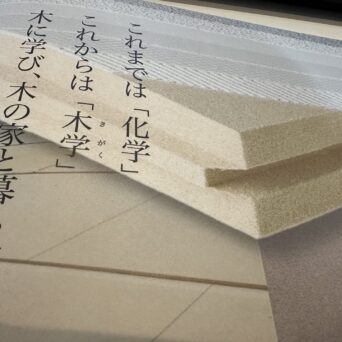 これまでは「化学」
これからは「木学」
さがく
木に学び、木の家と暮